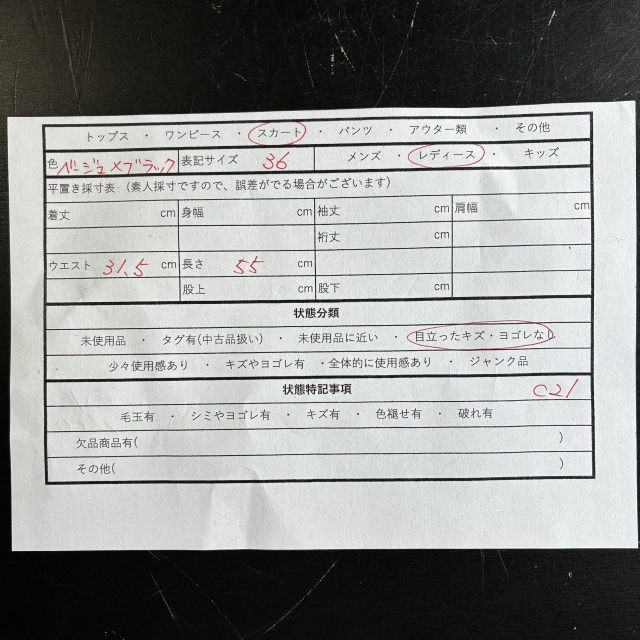 トップス ・ ワンピース ・ スカート ・ パンツ ・ アウター類 ・ その他
色 ベージュ×ブラック 表記サイズ 36 メンズ ・ レディース ・ キッズ
平置き採寸表（素人採寸ですので、誤差がでる場合がございます）
着丈 cm 身幅 cm 袖丈 cm 肩幅 cm
裄丈 cm
ウエスト 31.5 cm 長さ 55 cm
股上 cm 股下 cm
状態分類
未使用品 ・ タグ有(中古品扱い) ・ 未使用品に近い ・ 目立ったキズ・ヨゴレなし
少々使用感あり ・ キズやヨゴレ有 ・全体的に使用感あり ・ ジャンク品
状態特記事項 C21
毛玉有 ・ シミやヨゴレ有 ・ キズ有 ・ 色褪せ有 ・ 破れ有
欠品商品有( )
その他( )